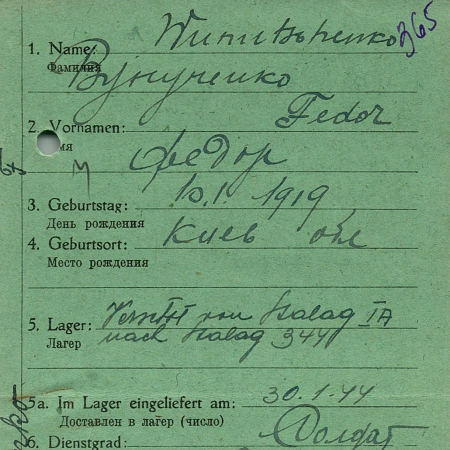 365
1. Name:
Фамилия
2. Vornamen: Fedor
Имя Федор
3. Geburtstag: 10.1.1919
День рождения
4. Geburtsort: Киев обл
Место рождения
5. Lager: von Stalag IA
Лагер nach Stalag 344
5a. Im Lager eingeliefert am: 30.1.44
Доставлен в лагер (число)
6. Dienstgrad: Soldat